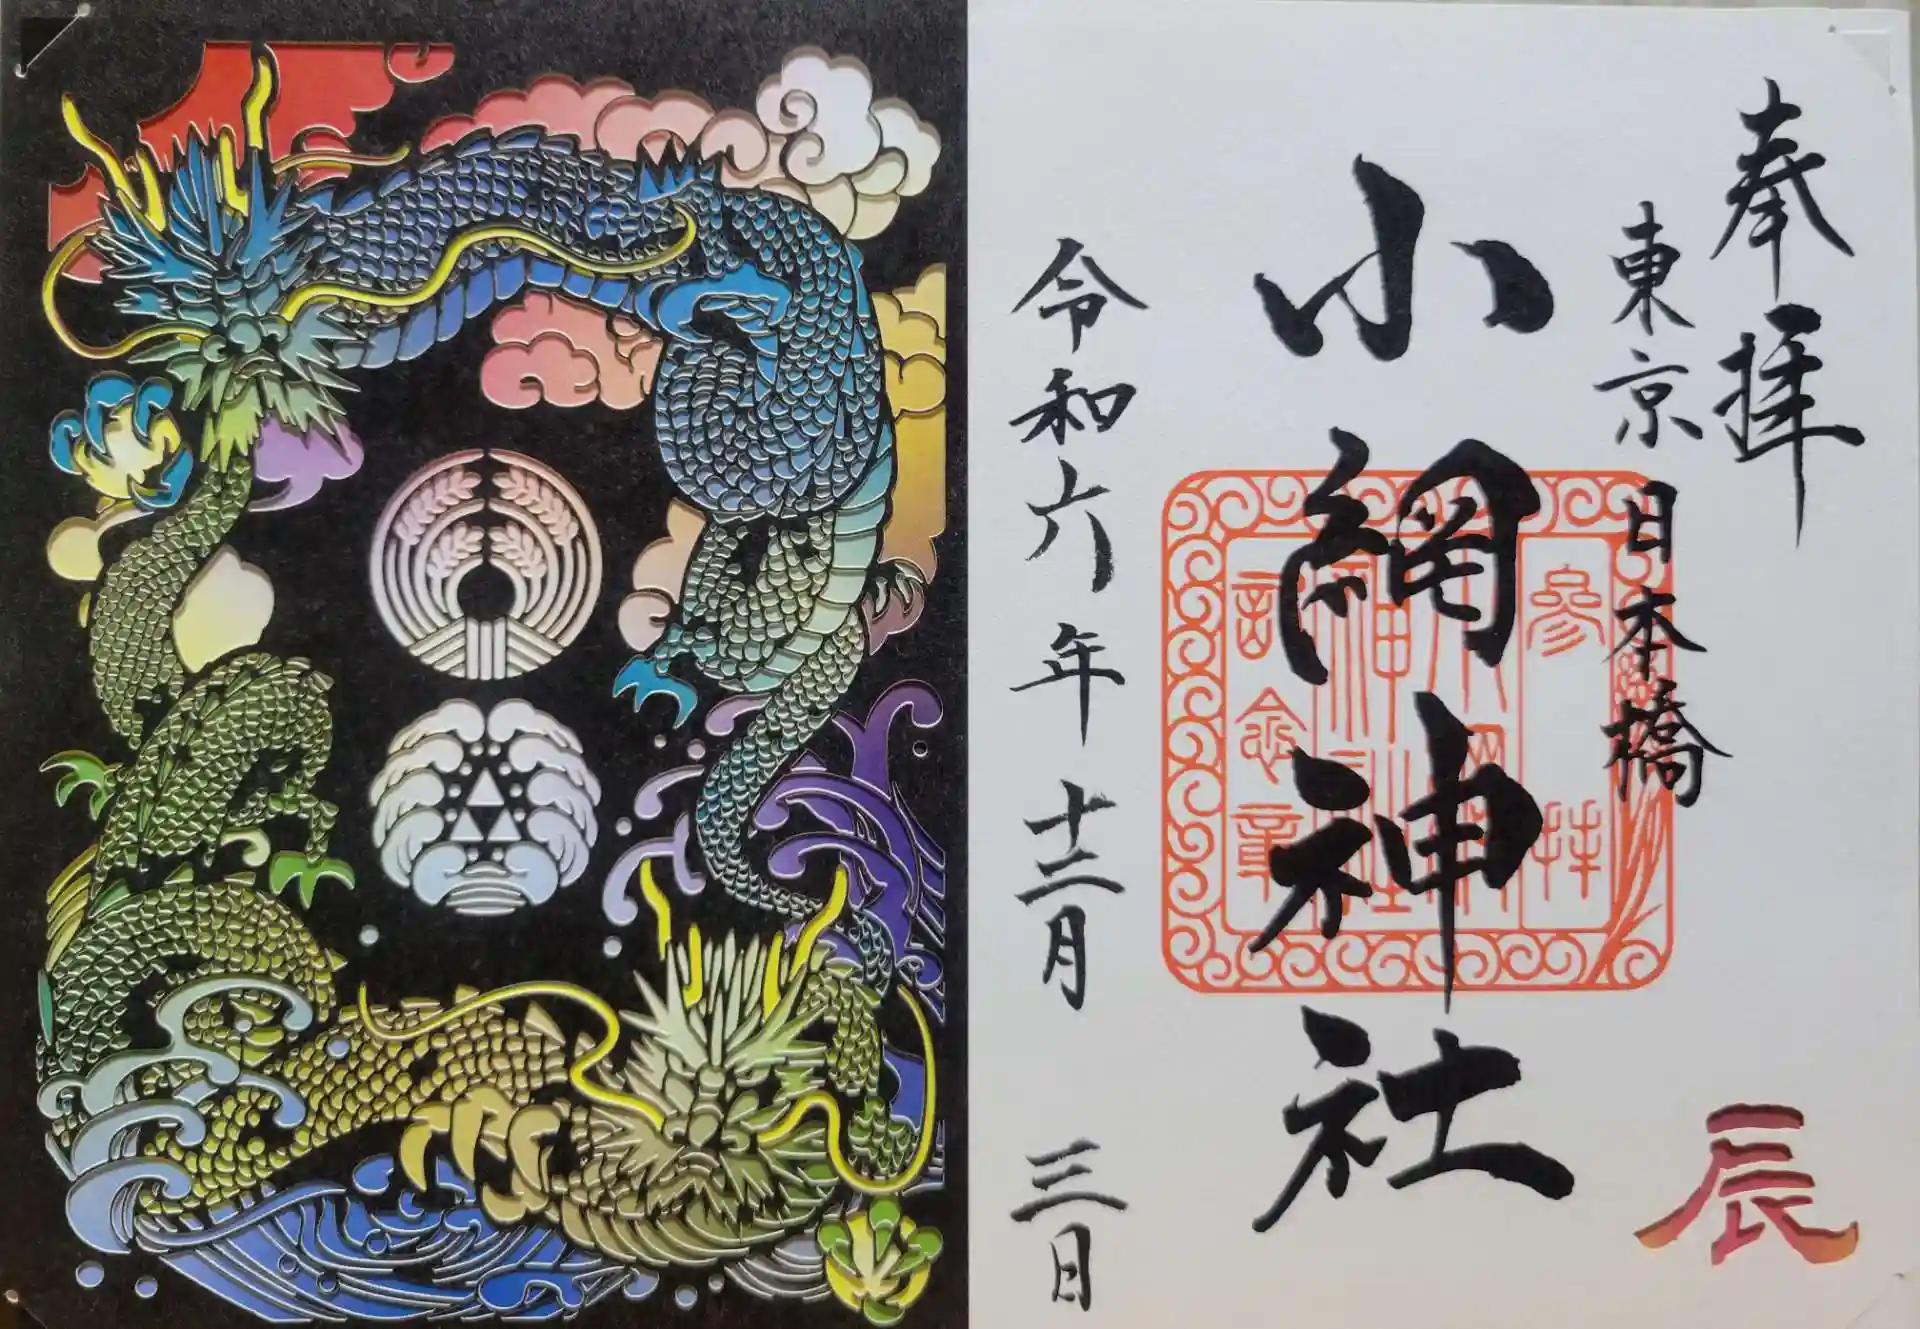 奉拝
東京
日本橋
小網神社
参拝
小網
神社
記念章
令和六年十二月三日
辰